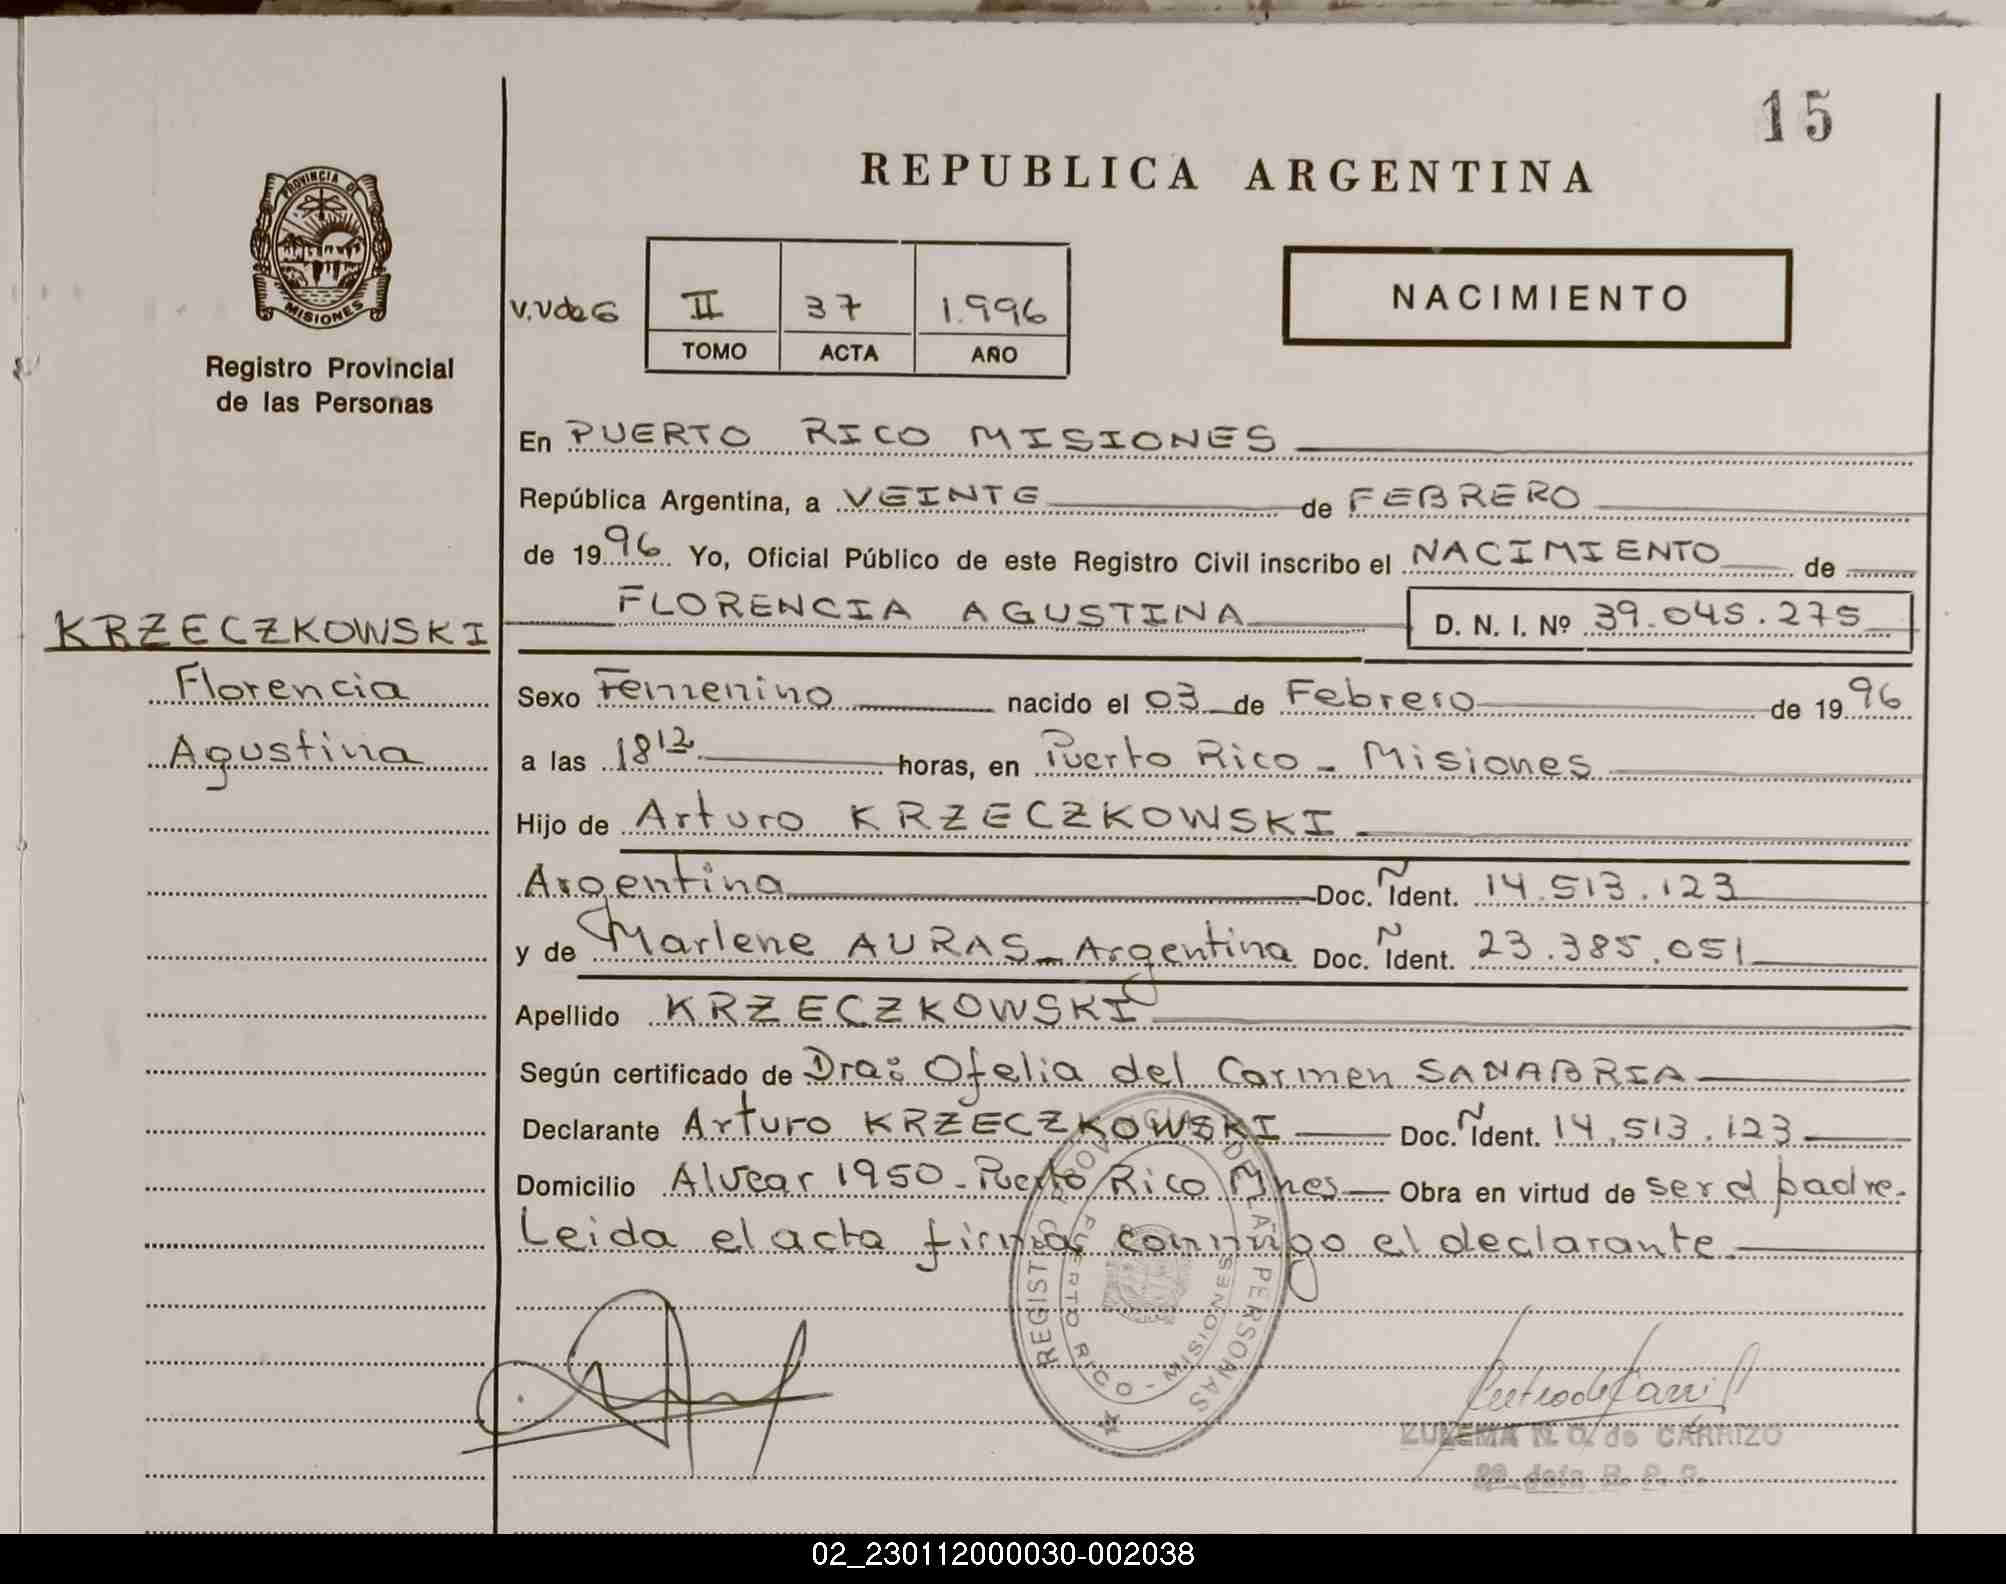 15
REPUBLICA ARGENTINA
PROVINCIA DE
MISIONES
Registro Provincial
de las Personas
V.V de G
II 37 1.996
TOMO ACTA AÑO
NACIMIENTO
En PUERTO RICO MISIONES
República Argentina, a VEINTE de FEBRERO
de 1996 Yo, Oficial Público de este Registro Civil inscribo el NACIMIENTO de
KRZECZKOWSKI
Florencia
Agustina
FLORENCIA AGUSTINA D. N. I. Nº 39.045.275
Sexo Femenino nacido el 03 de Febrero de 1996
a las 18 12 horas, en Puerto Rico - Misiones
Hijo de Arturo KRZECZKOWSKI
Argentina Doc. Ident. 14.513.123
y de Marlene AURAS - Argentina Doc. Ident. 23.385.051
Apellido KRZECZKOWSKI
Según certificado de Dra: Ofelia del Carmen SANABRIA
Declarante Arturo KRZECZKOWSKI Doc. Ident. 14.513.123
Domicilio Alvear 1950 - Puerto Rico Mnes Obra en virtud de ser el padre.
Leida el acta firma conmigo el declarante
REGISTRO PROV DE LAS PERSONAS
PUERTO RICO - MISIONES
ZULEMA N. O. de CARRIZO
02_230112000030-002038